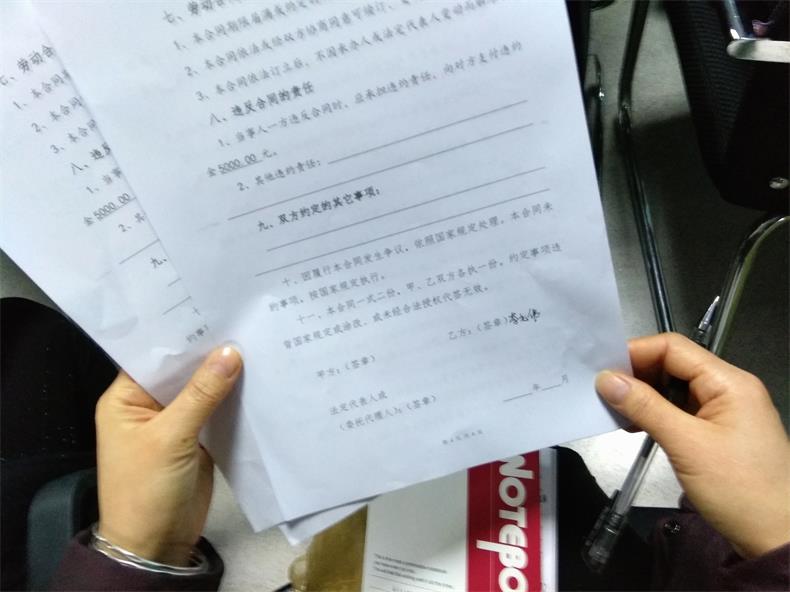 七、劳动合
1、本合同期限届满或约定
2、本合同依法或经双方协商同意可续订、
3、本合同依法订立后，不因承办人或法定代表人变动而解除
八、违反合同的责任
1、当事人一方违反合同时，应承担违约责任，向对方支付违约
金5000.00元。
2、其他违约责任：
九、双方约定的其它事项：
十、因履行本合同发生争议，依照国家规定处理。本合同未
约事项，按国家规定执行。
十一、本合同一式二份，甲、乙双方各执一份。约定事项违
背国家规定或涂改、或未经合法授权代签无效。
甲方：（签章）
乙方：（签章）
法定代表人或
（委托代理人）：（签章）
年 月
七、劳动合
1、本合同
2、本合同
3、本合
八、违反
1、当事
金5000.00
2、其
九、
十
约事
NOTEBO